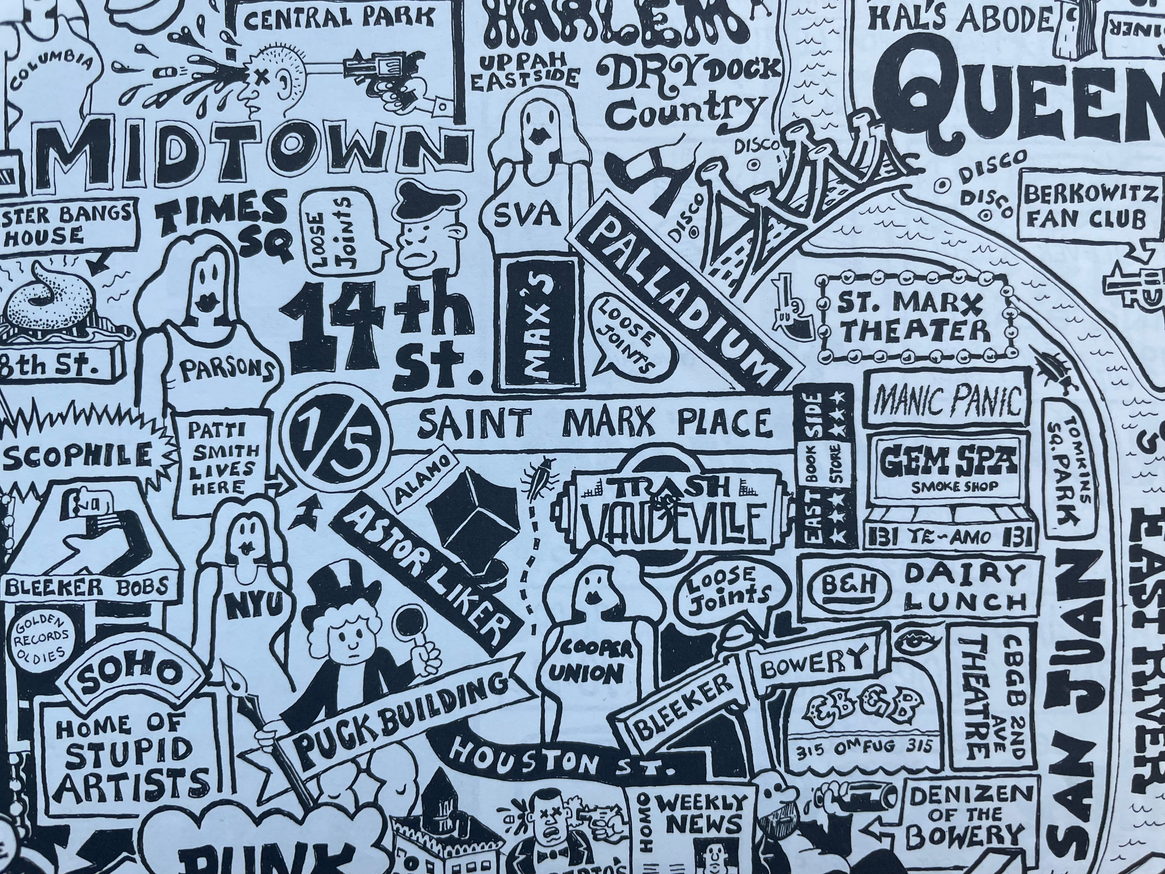 CENTRAL PARK
COLUMBIA
HARLEM
UPPAH
EASTSIDE
DRYDOCK
Country
HAL'S ABODE
DINER
QUEEN
MIDTOWN
DISCO
DISCO
DISCO
DISCO
BERKOWITZ
FAN CLUB
STER BANGS
HOUSE
TIMES
SQ
LOOSE
JOINTS
SVA
PALLADIUM
8th St.
PARSONS
14th
St.
MAX'S
LOOSE
JOINTS
ST. MARX
THEATER
1/5
SAINT MARX PLACE
EAST SIDE
BOOK
STORE
MANIC PANIC
GEM SPA
SMOKE SHOP
131 TE-AMO 131
TOMKINS
SQ. PARK
SCOPHILE
PATTI
SMITH
LIVES
HERE
ALAMO
ASTOR LIKER
TRASH
VAUDEVILLE
BLEEKER BOBS
NYU
LOOSE
JOINTS
B&H
DAIRY
LUNCH
GOLDEN
RECORDS
OLDIES
SOHO
HOME OF
STUPID
ARTISTS
PUCK BUILDING
COOPER
UNION
BLEEKER
BOWERY
CBGB
315 OMFUG 315
CBGB 2ND
AVE
THEATRE
SAN JUAN
EAST RIVER
HOUSTON ST.
HOMO
WEEKLY
NEWS
DENIZEN
OF THE
BOWERY
PUNK